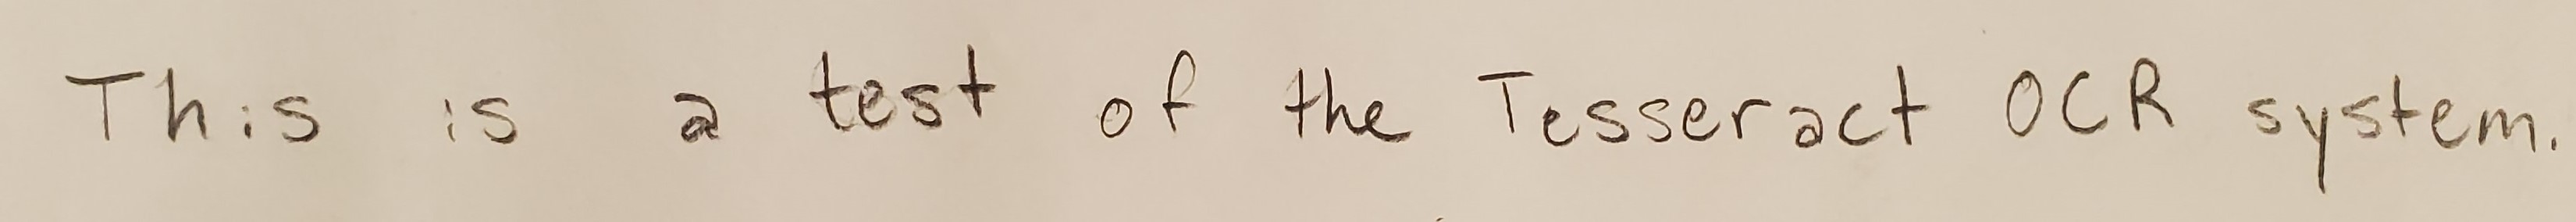 This is a test of the Tesseract OCR system.